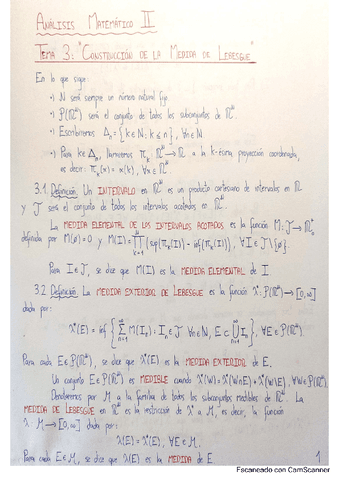 ANÁLISIS MATEMÁTICO II
TEMA 3: "CONSTRUCCIÓN DE LA MEDIDA DE LEBESGUE"
En lo que sigue:
•) N será siempre un número natural fijo.
•) P(ℝᴺ) será el conjunto de todos los subconjuntos de ℝᴺ
•) Escribiremos Δₙ = {k∈ℕ: k≤n}, ∀n∈ℕ
•) Para k∈Δ_N, llamaremos π_k: ℝᴺ→ℝ a la k-ésima proyección coordenada,
es decir: π_k(x) = x(k), ∀x∈ℝᴺ
3.1. Definición. Un INTERVALO en ℝᴺ es un producto cartesiano de intervalos en ℝ
y J será el conjunto de todos los intervalos acotados en ℝᴺ.
La MEDIDA ELEMENTAL DE LOS INTERVALOS ACOTADOS es la función M: J→ℝ₀⁺
definida por M(∅)=0 y M(I)=∏_{k=1}^N (sup(π_k(I)) - inf(π_k(I))), ∀I∈J\{∅}.
Para I∈J, se dice que M(I) es la MEDIDA ELEMENTAL de I.
3.2. Definición. La MEDIDA EXTERIOR DE LEBESGUE es la función λ*: P(ℝᴺ)→[0,∞]
dada por:
λ*(E) = inf {∑_{n=1}^∞ M(Iₙ): Iₙ∈J ∀n∈ℕ, E⊂⋃_{n=1}^∞ Iₙ}, ∀E∈P(ℝᴺ)
Para cada E∈P(ℝᴺ), se dice que λ*(E) es la MEDIDA EXTERIOR de E.
Un conjunto E∈P(ℝᴺ) es MEDIBLE cuando λ*(W)=λ*(W∩E)+λ*(W\E), ∀W∈P(ℝᴺ).
Denotaremos por M a la familia de todos los subconjuntos medibles de ℝᴺ. La
MEDIDA DE LEBESGUE en ℝᴺ es la restricción de λ* a M, es decir, la función
λ: M→[0,∞] dada por:
λ(E) = λ*(E), ∀E∈M.
Para cada E∈M, se dice que λ(E) es la MEDIDA de E
1
Escaneado con CamScanner